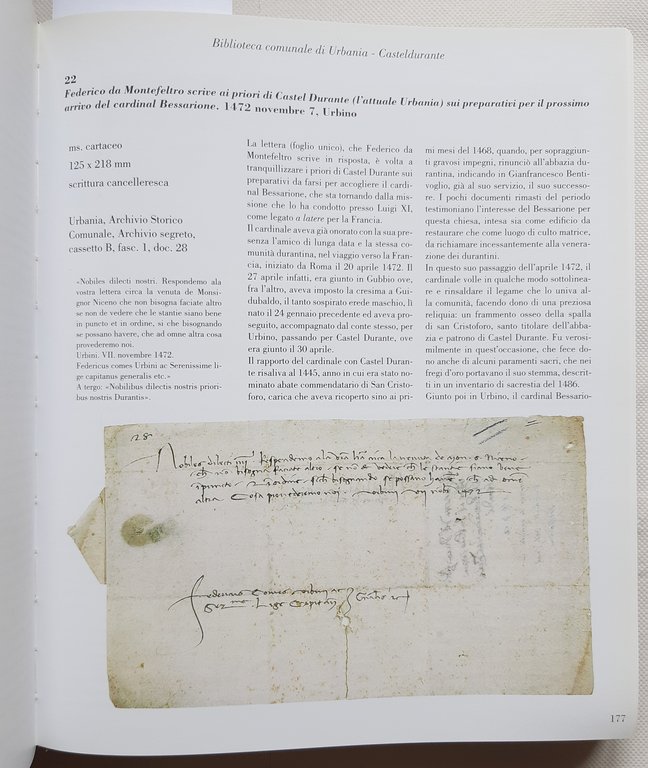 Biblioteca comunale di Urbania - Casteldurante
22
Federico da Montefeltro scrive ai priori di Castel Durante (l'attuale Urbania) sui preparativi per il prossimo
arrivo del cardinal Bessarione. 1472 novembre 7, Urbino
ms. cartaceo
125 x 218 mm
scrittura cancelleresca
Urbania, Archivio Storico
Comunale, Archivio segreto,
cassetto B, fasc. 1, doc. 28
«Nobiles dilecti nostri. Respondemo ala
vostra lettera circa la venuta de Monsi-
gnor Niceno che non bisogna faciate altro
se non de vedere che le stantie siano bene
in puncto et in ordine, si che bisognando
se possano havere, che ad omne altra cosa
provederemo noi.
Urbini. VII. novembre 1472.
Federicus comes Urbini ac Serenissime li-
ge capitanus generalis etc.»
A tergo: «Nobilibus dilectis nostris priori-
bus nostris Durantis».
La lettera (foglio unico), che Federico da
Montefeltro scrive in risposta, è volta a
tranquillizzare i priori di Castel Durante sui
preparativi da farsi per accogliere il cardi-
nal Bessarione, che sta tornando dalla mis-
sione che lo ha condotto presso Luigi XI,
come legato a latere per la Francia.
Il cardinale aveva già onorato con la sua pre-
senza l'amico di lunga data e la stessa co-
munità durantina, nel viaggio verso la Fran-
cia, iniziato da Roma il 20 aprile 1472. Il
27 aprile infatti, era giunto in Gubbio ove,
fra l'altro, aveva imposto la cresima a Gui-
dubaldo, il tanto sospirato erede maschio, lì
nato il 24 gennaio precedente ed aveva pro-
seguito, accompagnato dal conte stesso, per
Urbino, passando per Castel Durante, ove
era giunto il 30 aprile.
Il rapporto del cardinale con Castel Duran-
te risaliva al 1445, anno in cui era stato no-
minato abate commendatario di San Cristo-
foro, carica che aveva ricoperto sino ai pri-
mi mesi del 1468, quando, per sopraggiun-
ti gravosi impegni, rinunciò all'abbazia du-
rantina, indicando in Gianfrancesco Benti-
voglio, già al suo servizio, il suo successo-
re. I pochi documenti rimasti del periodo
testimoniano l'interesse del Bessarione per
questa chiesa, intesa sia come edificio da
restaurare che come luogo di culto matrice,
da richiamare incessantemente alla venera-
zione dei durantini.
In questo suo passaggio dell'aprile 1472, il
cardinale volle in qualche modo sottolinea-
re e rinsaldare il legame che lo univa al-
la comunità, facendo dono di una preziosa
reliquia: un frammento osseo della spalla
di san Cristoforo, santo titolare dell'abba-
zia e patrono di Castel Durante. Fu verosi-
milmente in quest'occasione, che fece do-
no anche di alcuni paramenti sacri, che nei
fregi d'oro portavano il suo stemma, descrit-
ti in un inventario di sacrestia del 1486.
Giunto poi in Urbino, il cardinal Bessario-
28
177